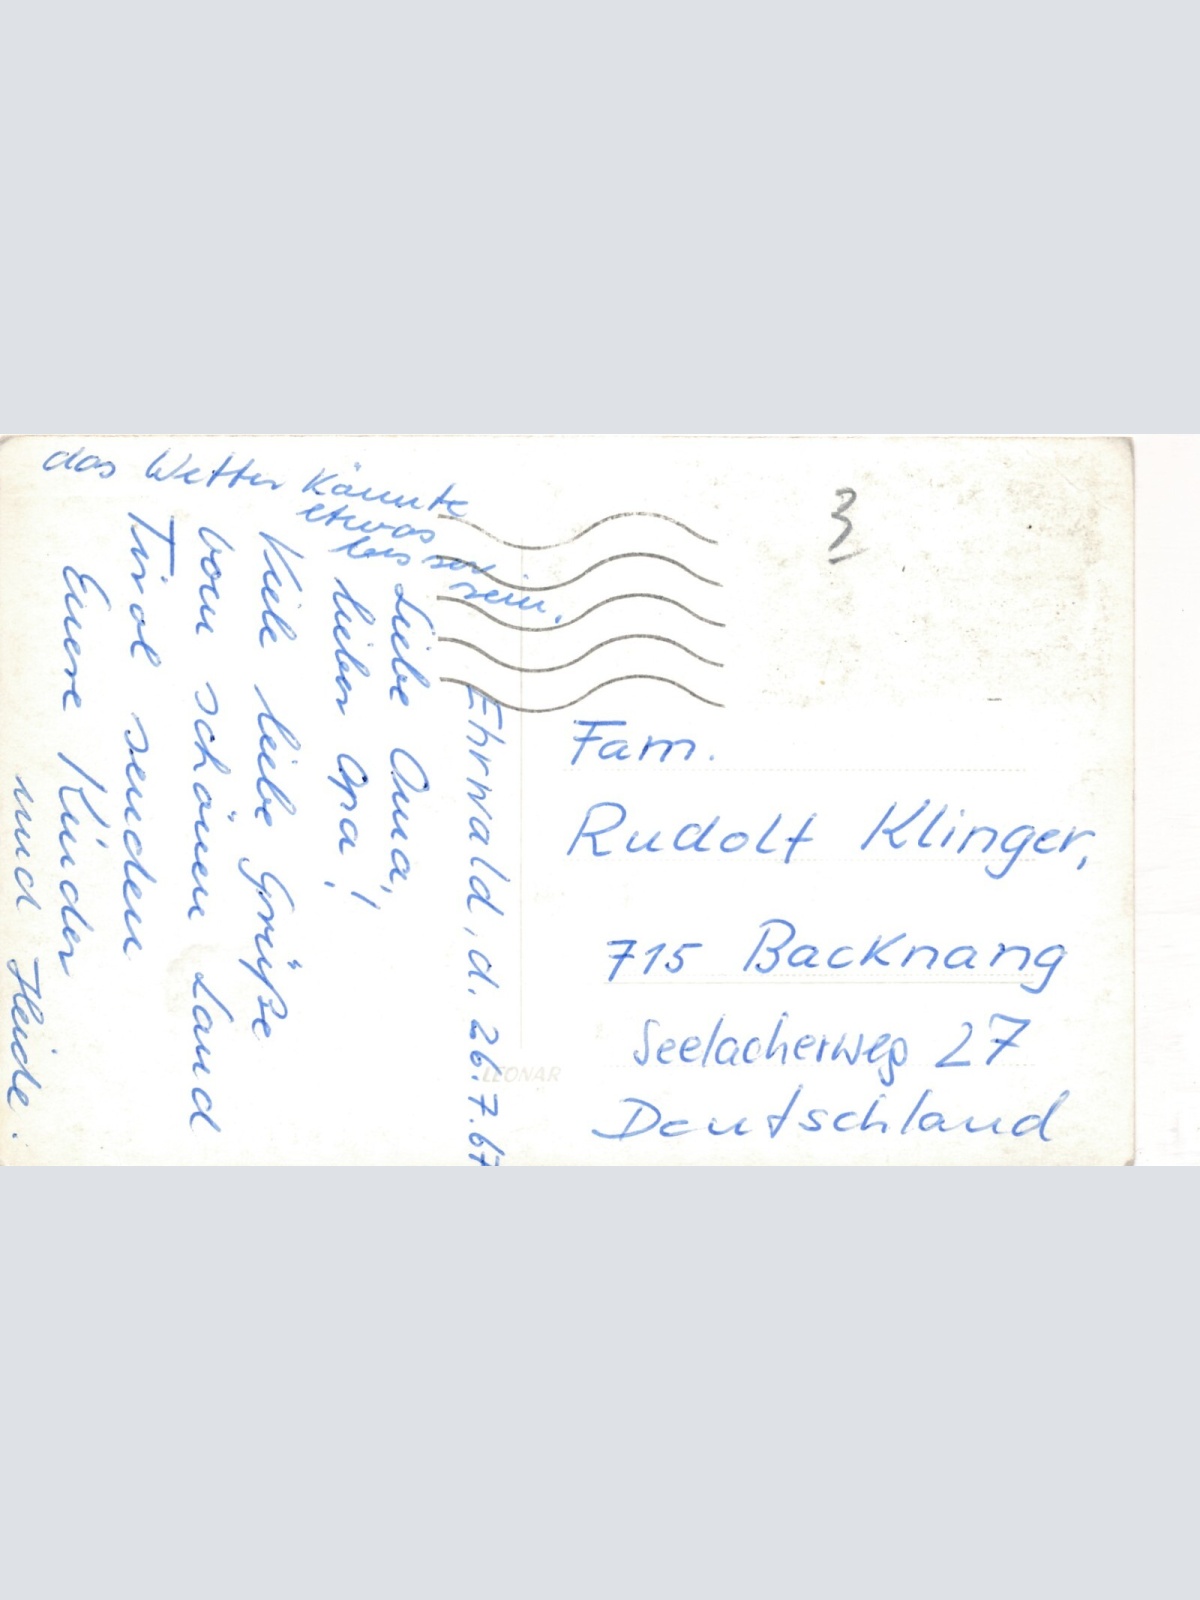 Ehrwald, d. 26.7.67
Liebe Oma,
lieber Opa!
Viele liebe Grüße
vom schönen Land
Tirol senden
Euere Kinder
und Heide.
das Wetter könnte
etwas
besser
sein.
Fam.
Rudolf Klinger,
715 Backnang
Seelacherweg 27
Deutschland
3
LEONAR